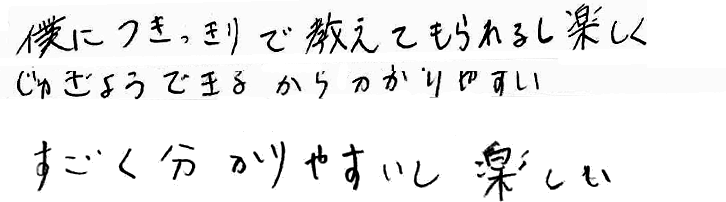 僕につきっきりで教えてもられるし楽しく
じゅぎようできるからわかりやすい
すごく分かりやすいし楽しい